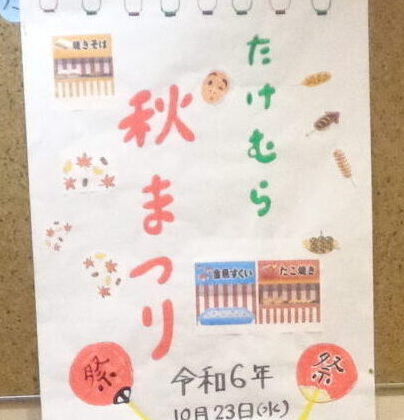 焼きそば
たけむら
秋まつり
金魚すくい
たこ焼き
祭
祭
令和6年
10月23日(水)